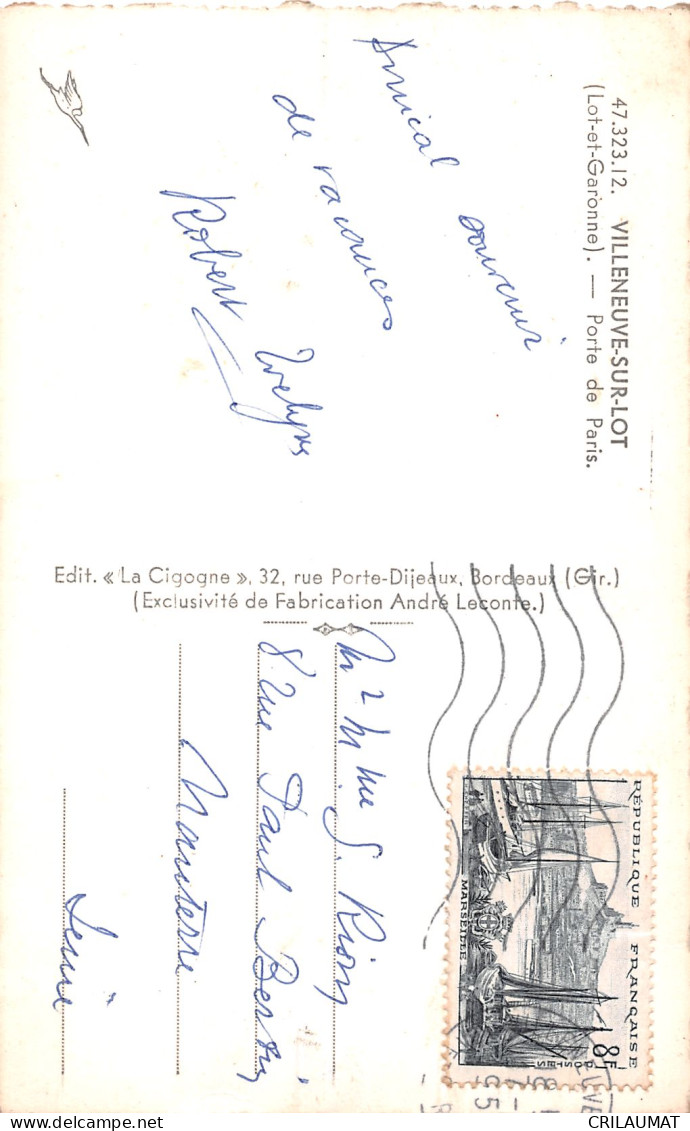 47.323.12. VILLENEUVE-SUR-LOT
(Lot-et-Garonne). — Porte de Paris.
Amical souvenir
de vacances
Robert Evelyne
Edit. « La Cigogne », 32, rue Porte-Dijeaux, Bordeaux (Gir.)
(Exclusivité de Fabrication André Leconte.)
RÉPUBLIQUE FRANÇAISE
8F
POSTES
MARSEILLE
M & Mme G. Riom
8 rue Paul Bert
Nanterre
Seine
www.delcampe.net
CRILAUMAT